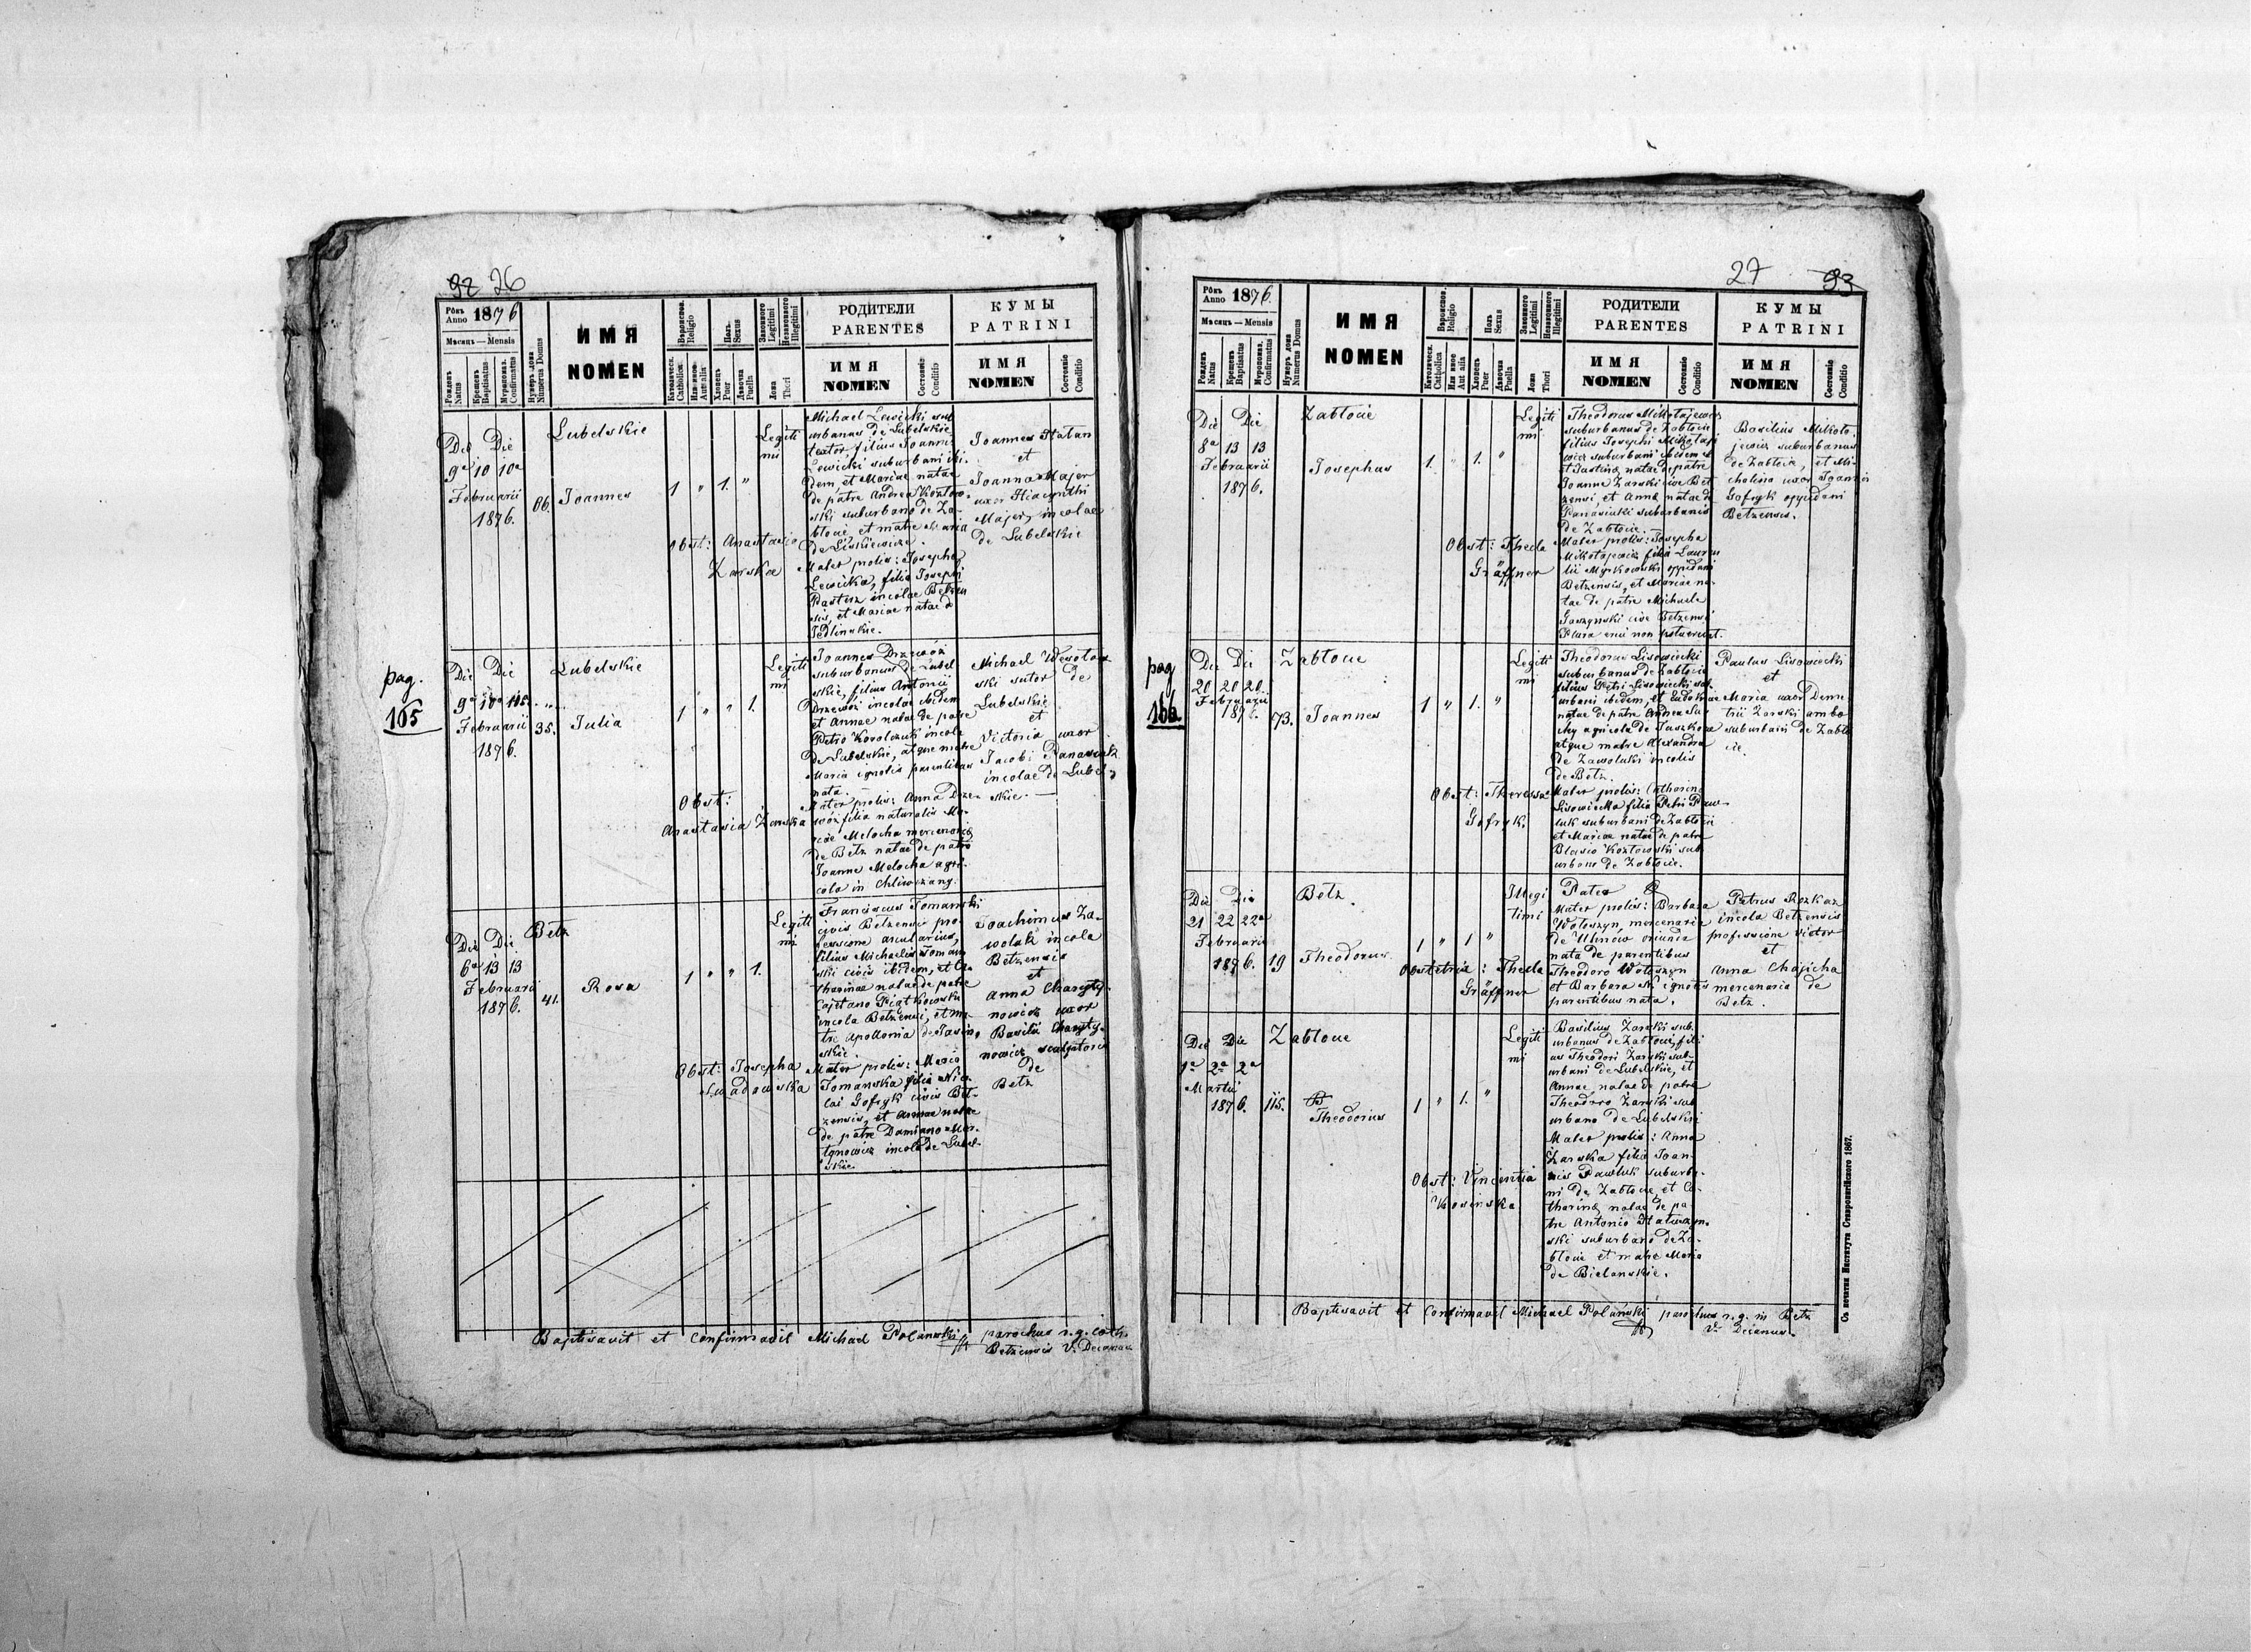 92 26
Рôкъ Anno 1876
Мѣсяць — Mensis
Рожденъ Natus
Крещенъ Baptisatus
Мүропомаз. Confirmatus
Нумеръ дома Numerus Domus
ИМЯ
NOMEN
Вѣроисповѣд. Religio
Католическ. Catholica
Или иное Aut alia
Полъ Sexus
Хлопецъ Puer
Дѣвочка Puella
Законного Legitimi
Незаконного Illegitimi
Ложа Thori
РОДИТЕЛИ
PARENTES
ИМЯ
NOMEN
Состояніе Conditio
КУМЫ
PATRINI
ИМЯ
NOMEN
Состояніе Conditio
Die Die
9a 10 10a
Februarii
1876.
66.
Lubelskie
Joannes
1 " 1. "
Legiti
mi
Obst: Anastasia
Zarska
Michael Lewicki sub
urbanus de Lubelskie
textor filius Joannis
Lewicki suburbani ibi
dem, et Mariae natae
de patre Andrea Kozłow-
ski suburbano de Za-
błocie, et matre Maria
de Liskiewicze.
Mater prolis: Josepha
Lewicka, filia Josephi
Pasterz incolae Belzen
sis, et Mariae natae d
Jedlinskie.
Joannes Hatan
et
Joanna Majer
uxor Hiacynthi
Majer, incolae
de Lubelskie
pag.
165
Die Die
9a 10a 10a
Februarii
1876.
35.
Lubelskie
Julia
1 " " 1.
Legiti
mi
Obst:
Anastasia Zarska
Joannes Drzewóz
suburbanus de Lubel
skie, filius Antonii
Drzewóz incolae ibidem
et Annae natae de patre
Petro Korolczuk incola
de Lubelskie, atque matre
Maria ignotis parentibus
nata.
Mater prolis: Anna Drze-
wóz filia naturalis Ma-
riae Melocha mercenaria
de Betz natae de patre
Joanne Melocha agri-
cola in Chliwczany.
Michael Wesołow
ski sutor de
Lubelskie
et
Victoria uxor
Jacobi Panasiuk
incolae de Lubel-
skie.
Die Die
6a 13 13
Februarii
1876.
41.
Betz
Rosa
1 " " 1.
Legiti
mi
Obst: Josepha
Franciscus Tomanski
civis Betzensis pro-
fessione arcularius,
filius Michaelis Toman
ski civis ibidem, et Ca-
tharinae natae de patre
Cajetano Piątkowski
incola Betzensi, et ma-
tre Apollonia de Jasin-
skie.
Mater prolis: Maria
Tomanska filia Nico
lai Gofryk civis Bet-
zensis, et Annae natae
de patre Damiano Mar-
tynowicz incola de Lubel-
skie.
Joachimus Za-
woluk incola
Betzensis
et
Anna Charyty-
nowicz uxor
Basilii Charyty-
nowicz sculptoris
de
Betz
Baptisavit et confirmavit Michael Polanski parochus r.g. cath.
Betzensis V. Decanus
27 93
Рôкъ Anno 1876.
Мѣсяць — Mensis
Рожденъ Natus
Крещенъ Baptisatus
Мүропомаз. Confirmatus
Нумеръ дома Numerus Domus
ИМЯ
NOMEN
Вѣроисповѣд. Religio
Католическ. Catholica
Или иное Aut alia
Полъ Sexus
Хлопецъ Puer
Дѣвочка Puella
Законного Legitimi
Незаконного Illegitimi
Ложа Thori
РОДИТЕЛИ
PARENTES
ИМЯ
NOMEN
Состояніе Conditio
КУМЫ
PATRINI
ИМЯ
NOMEN
Состояніе Conditio
Die Die
8a 13 13
Februarii
1876.
Zabłocie
Josephus
1. " 1. "
Legiti
mi
Obst: Thecla
Gräffner
Theodorus Mikołajewicz
suburbanus de Zabłocie
filius Josephi Mikołaje
wicz suburbani ibidem
et Justina natae de patre
Joanne Zarski cive Bet
zensi, et Anna natae de
Panasiuki suburbanis
de Zabłocie.
Mater prolis: Josepha
Mikołajewicz filia Lauren
tii Myrkowski oppidani
Betzensis, et Mariae na-
tae de patre Michaele
Gaszynski cive Betzensi
Plura erui non potuerunt.
Basilius Mikoła-
jewicz suburbanus
de Zabłocie, et Mi-
chalina uxor Joannis
Gofryk oppidani
Betzensis.
pag
166
Die Die
20 20 20
Februarii
1876.
73.
Zabłocie
Joannes
1 " 1. "
Legiti
mi
Obst: Theressa
Gofryk.
Theodorus Lisowiecki
suburbanus de Zabłocie
filius Petri Lisowiecki sub
urbani ibidem, et Eudokiae
natae de patre Andrea Su-
chy agricola de Tuszkow
atque matre Alexandra
de Zawoluki incolis
de Betz.
Mater prolis: Catharina
Lisowiecka filia Petri Paw-
luk suburbani de Zabłocie
et Mariae natae de patre
Blasio Kozłowski sub
urbano de Zabłocie.
Paulus Lisowiecki
et
Maria uxor Deme
trii Zarski ambo
suburbani de Zabło
cie.
Die Die
21 22 22a
Februarii
1876.
19
Betz.
Theodorus
1 " 1 "
Illegi
timi
Obstetrix: Thecla
Gräffner
Pater
Mater prolis: Barbara
Wołoszyn, mercenaria
de Uhnow oriunda
nata de parentibus
Theodoro Wołoszyn
et Barbara ski ignotis
parentibus nata.
Petrus Rozkaz
incola Betzensis
professione vietor
et
Anna Chajicha
mercenaria de
Betz.
Die Die
1a 2a 2a
Martii
1876.
115.
Zabłocie
Theodorus
1 " 1. "
Legiti
mi
Obst: Vincentia
Kosinska
Basilius Zarski sub.
urbanus de Zabłocie, fili-
us Theodori Zarski sub-
urbani de Lubelskie, et
Annae natae de patre
Theodoro Zarski sub
urbano de Lubelskie
Mater prolis: Anna
Zarska filia Joan-
nis Pawluk suburba-
ni de Zabłocie, et Ca-
tharina natae de pa-
tre Antonio
ski suburbano de Za-
błocie et matre Maria
de Bielanskie.
Baptisavit et Confirmavit Michael Polanski parochus r.g. in Betz
V. Decanus.
Съ печатни Института Ставропигійского 1867.